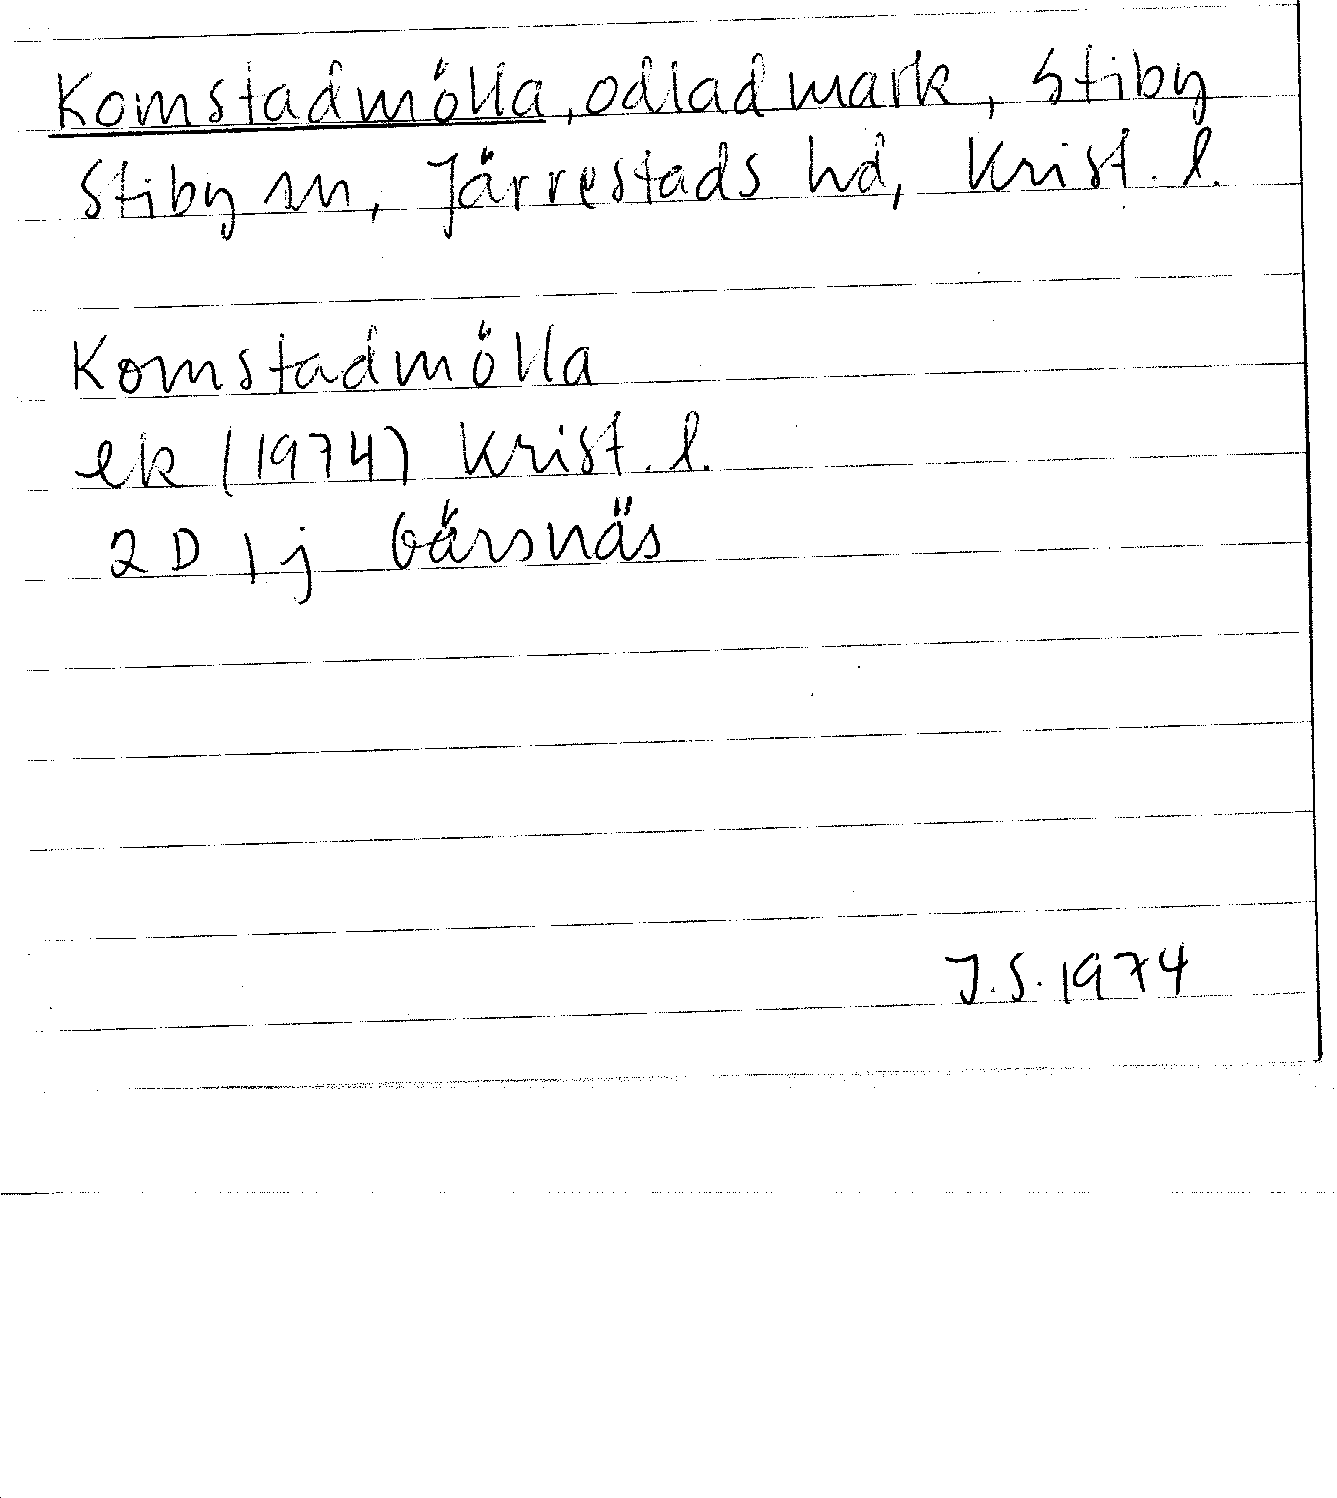 Komstadmölla, odlad mark, Stiby
Stiby sn, Järrestads hd, Krist. l.
Komstadmölla
ek (1974) Krist. l.
2D 1j Gärsnäs
J.S. 1974